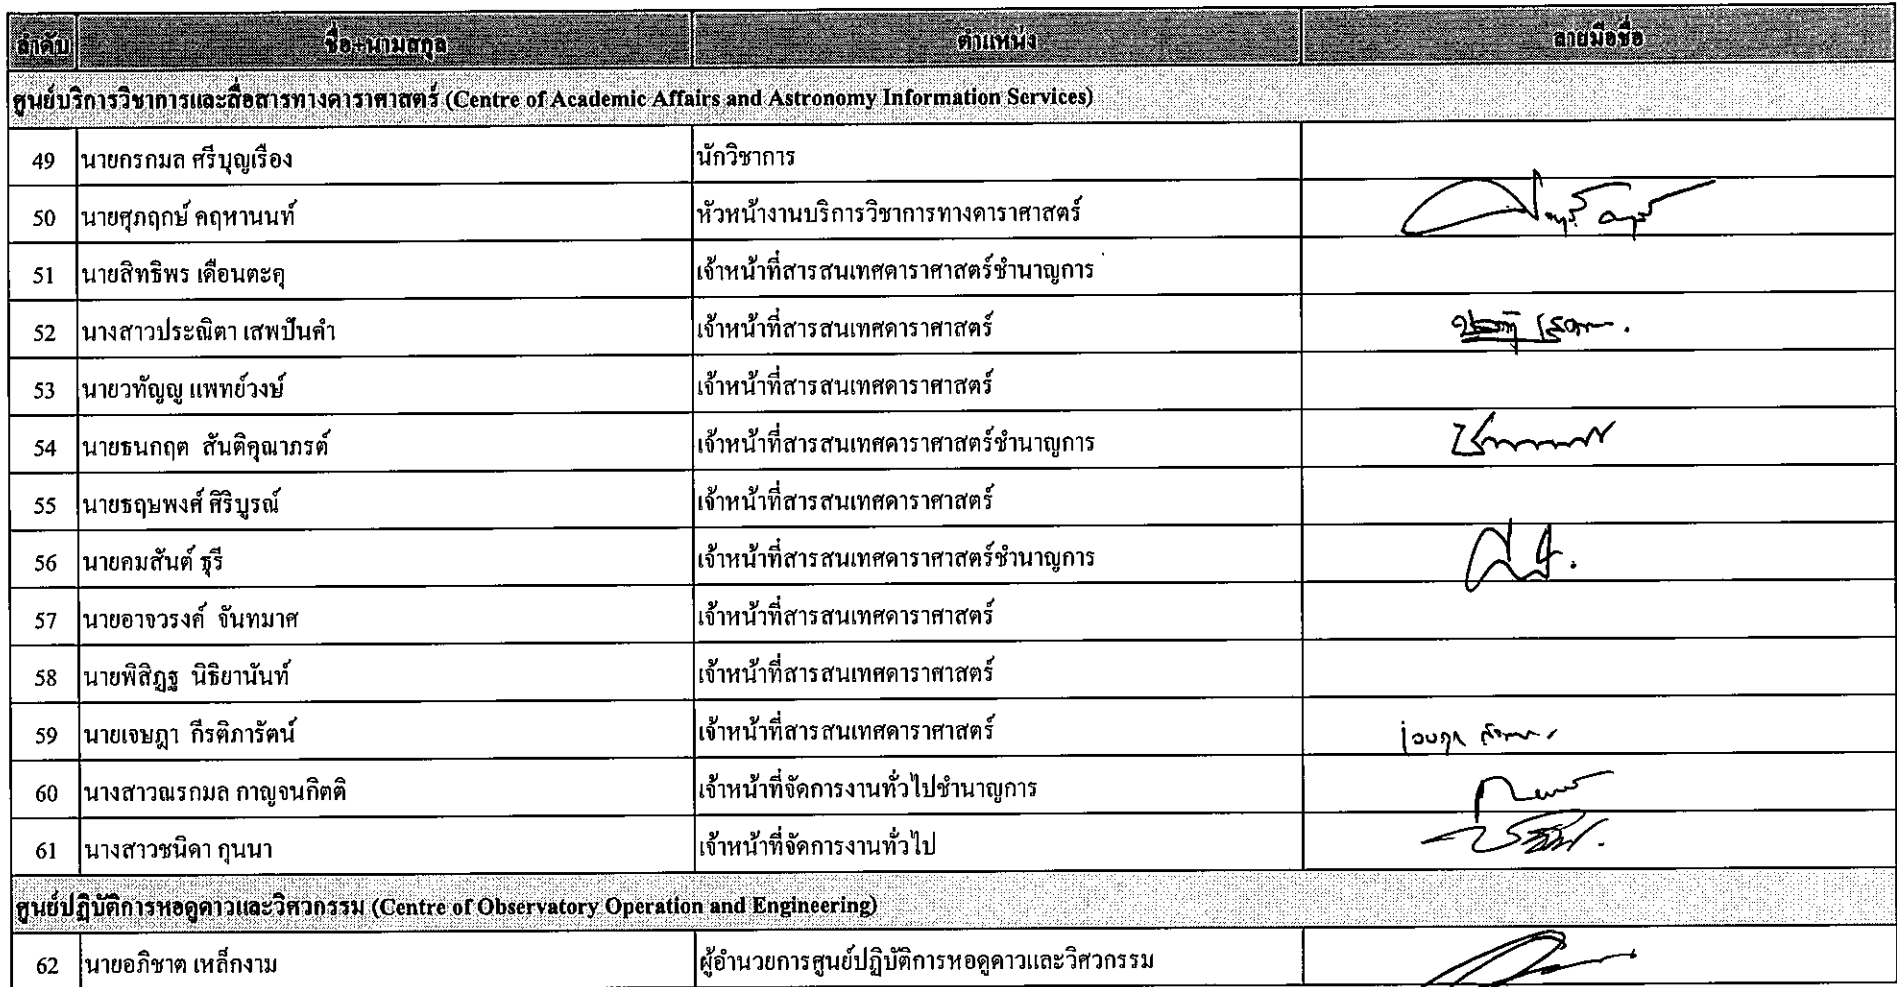 ลำดับ ชื่อ+นามสกุล ตำแหน่ง ลายมือชื่อ
ศูนย์บริการวิชาการและสื่อสารทางดาราศาสตร์ (Centre of Academic Affairs and Astronomy Information Services)
49 นายกรกมล ศรีบุญเรือง นักวิชาการ
50 นายศุภฤกษ์ คฤหานนท์ หัวหน้างานบริการวิชาการทางดาราศาสตร์
51 นายสิทธิพร เดือนตะคุ เจ้าหน้าที่สารสนเทศดาราศาสตร์ชำนาญการ
52 นางสาวประณิตา เสพปันคำ เจ้าหน้าที่สารสนเทศดาราศาสตร์
53 นายวทัญญู แพทย์วงษ์ เจ้าหน้าที่สารสนเทศดาราศาสตร์
54 นายธนกฤต สันติคุณาภรต์ เจ้าหน้าที่สารสนเทศดาราศาสตร์ชำนาญการ
55 นายธฤษพงศ์ ศิริบูรณ์ เจ้าหน้าที่สารสนเทศดาราศาสตร์
56 นายคมสันต์ ธุรี เจ้าหน้าที่สารสนเทศดาราศาสตร์ชำนาญการ
57 นายอาจวรงค์ จันทมาศ เจ้าหน้าที่สารสนเทศดาราศาสตร์
58 นายพิสิฏฐ นิธิยานันท์ เจ้าหน้าที่สารสนเทศดาราศาสตร์
59 นายเจษฎา กีรติภารัตน์ เจ้าหน้าที่สารสนเทศดาราศาสตร์
60 นางสาวณรกมล กาญจนกิตติ เจ้าหน้าที่จัดการงานทั่วไปชำนาญการ
61 นางสาวชนิดา กุนนา เจ้าหน้าที่จัดการงานทั่วไป
ศูนย์ปฏิบัติการหอดูดาวและวิศวกรรม (Centre of Observatory Operation and Engineering)
62 นายอภิชาต เหล็กงาม ผู้อำนวยการศูนย์ปฏิบัติการหอดูดาวและวิศวกรรม